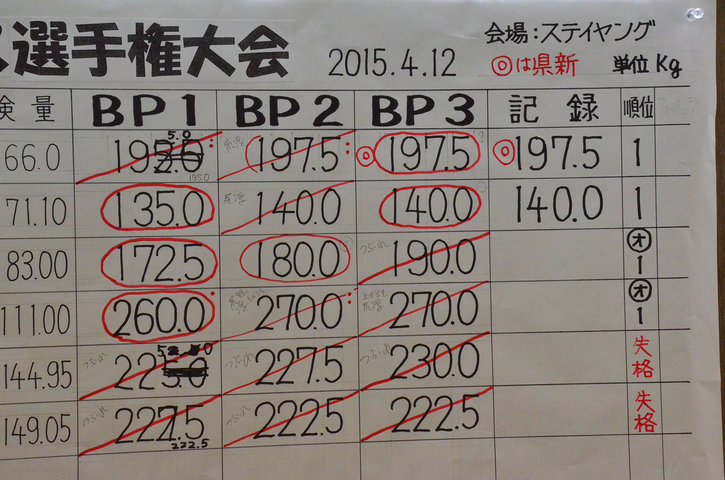 選手権大会 2015.4.12 会場：ステイヤング
◎は県新 単位 Kg
検量 BP1 BP2 BP3 記録 順位
66.0 195.0 197.5 ◎197.5 ◎197.5 1
195.0
71.10 135.0 140.0 140.0 140.0 1
83.00 172.5 180.0 190.0 オ 1
111.00 260.0 270.0 270.0 オ 1
144.95 225.0 227.5 230.0 失格
149.05 222.5 222.5 222.5 失格
222.5